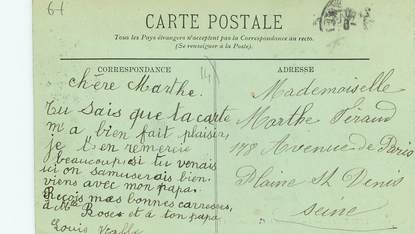 64
CARTE POSTALE
Tous les Pays étrangers n'acceptent pas la Correspondance au recto.
(Se renseigner à la Poste).
CORRESPONDANCE
chère Marthe.
Tu sais que ta carte
m'a bien fait plaisir,
je t'en remercie
beaucoup si tu venais
ici on samuserais bien.
viens avec mon papa.
Reçois mes bonnes caresses,
à Me Roses et à ton papa
Louis
ADRESSE
Mademoiselle
Marthe Tiraud
178 Avenue de Paris
Plaine St Denis
Seine